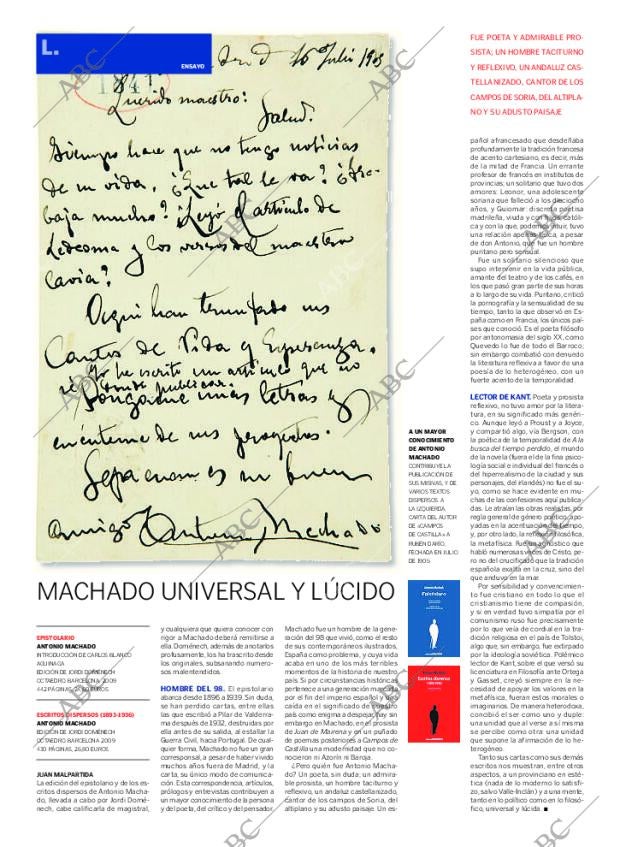 L.
ENSAYO
1847
16 Julio 1905
Querido maestro:
Salud.
Siempre hace que no tengo noticias
de su vida. ¿Que tal le va? ¿Tra-
baja mucho? ¿Leyó el artículo de
Ledesma y los versos del maestro
Cavia?
Aqui han triunfado sus
Cantos de Vida y Esperanza.
Yo he escrito un articulo que no
sé donde publicar.
Pongame unas letras y
cuénteme de sus proyectos.
Sepa cuanto es su buen
amigo Antonio Machado
FUE POETA Y ADMIRABLE PRO-
SISTA; UN HOMBRE TACITURNO
Y REFLEXIVO, UN ANDALUZ CAS-
TELLANIZADO, CANTOR DE LOS
CAMPOS DE SORIA, DEL ALTIPLA-
NO Y SU ADUSTO PAISAJE
A UN MAYOR
CONOCIMIENTO
DE ANTONIO
MACHADO
CONTRIBUYE LA
PUBLICACIÓN DE
SUS MISIVAS, Y DE
VARIOS TEXTOS
DISPERSOS. A
LA IZQUIERDA,
CARTA DEL AUTOR
DE «CAMPOS
DE CASTILLA» A
RUBÉN DARÍO,
FECHADA EN JULIO
DE 1905
MACHADO UNIVERSAL Y LÚCIDO
EPISTOLARIO
ANTONIO MACHADO
INTRODUCCIÓN DE CARLOS BLANCO
AGUINAGA
EDICIÓN DE JORDI DOMÉNECH
OCTAEDRO. BARCELONA, 2009
442 PÁGINAS, EUROS
ESCRITOS DISPERSOS (1893-1936)
ANTONIO MACHADO
EDICIÓN DE JORDI DOMÉNECH
OCTAEDRO. BARCELONA, 2009
410 PÁGINAS, 26,80 EUROS
JUAN MALPARTIDA
La edición del epistolario y de los es-
critos dispersos de Antonio Macha-
do, llevada a cabo por Jordi Domé-
nech, cabe calificarla de magistral,
y cualquiera que quiera conocer con
rigor a Machado deberá remitirse a
ella. Doménech, además de anotarlos
profusamente, los ha trascrito desde
los originales, subsanando numero-
sos malentendidos.
HOMBRE DEL 98. El epistolario
abarca desde 1896 a 1939. Sin duda,
se han perdido cartas, entre ellas
las que escribió a Pilar de Valderra-
ma después de 1932, destruidas por
ella antes de su salida, al estallar la
Guerra Civil, hacia Portugal. De cual-
quier forma, Machado no fue un gran
corresponsal, a pesar de haber vivido
muchos años fuera de Madrid, y la
carta, su único modo de comunica-
ción. Esta correspondencia, artículos,
prólogos y entrevistas contribuyen a
un mayor conocimiento de la persona
y del poeta, del crítico y del pensador.
Machado fue un hombre de la gene-
ración del 98 que vivió, como el resto
de sus contemporáneos ilustrados,
España como problema, y cuya vida
acaba en uno de los más terribles
momentos de la historia de nuestro
país. Si por circunstancias históricas
pertenece a una generación marcada
por el fin del imperio español y ubi-
cada en el significado de nuestro
país como enigma a despejar, hay sin
embargo en Machado, en el prosista
de Juan de Mairena y en un puñado
de poemas posteriores a Campos de
Castilla una modernidad que no co-
nocieron ni Azorín ni Baroja.
¿Pero quién fue Antonio Macha-
do? Un poeta, sin duda; un admira-
ble prosista, un hombre taciturno y
reflexivo, un andaluz castellanizado,
cantor de los campos de Soria, del
altiplano y su adusto paisaje. Un es-
pañol afrancesado que desdeñaba
profundamente la tradición francesa
de acento cartesiano, es decir, más
de la mitad de Francia. Un errante
profesor de francés en institutos de
provincias; un solitario que tuvo dos
amores: Leonor, una adolescente
soriana que falleció a los dieciocho
años, y Guiomar: discreta poetisa
madrileña, viuda y con hijos, católi-
ca y con la que, podemos intuir, tuvo
una relación apenas física, a pesar
de don Antonio, que fue un hombre
puritano pero sensual.
Fue un solitario silencioso que
supo intervenir en la vida pública,
amante del teatro y de los cafés, en
los que pasó gran parte de sus horas
a lo largo de su vida. Puritano, criticó
la pornografía y la sensualidad de su
tiempo, tanto la que observó en Es-
paña como en Francia, los únicos paí-
ses que conoció. Es el poeta filósofo
por antonomasia del siglo XX, como
Quevedo lo fue de todo el Barroco;
sin embargo combatió con denuedo
la literatura reflexiva a favor de una
poesía de lo heterogéneo, con un
fuerte acento de la temporalidad.
LECTOR DE KANT. Poeta y prosista
reflexivo, no tuvo amor por la litera-
tura, en su significado más genérico.
Aunque leyó a Proust y a Joyce,
y compartió algo, vía Bergson, con
la poética de la temporalidad de A la
busca del tiempo perdido, el mundo
de la novela (fuera el de la fina psico-
logía social e individual del francés o
del hiperrealismo de la ciudad y sus
personajes, del irlandés) no fue el su-
yo, como se hace evidente en mu-
chas de las confesiones aquí publica-
das. Le atraían las obras realistas, por
regla general de género poético, apo-
yadas en la acentuación del tiempo,
y, por otro lado, la reflexión filosófica,
la metafísica. Fue un agnóstico que
habló numerosas veces de Cristo, pe-
ro no del crucificado que la tradición
española exalta en la cruz, sino del
que anduvo en la mar.
Por sensibilidad y convencimiento
fue cristiano en todo lo que el
cristianismo tiene de compasión,
y si en verdad tuvo simpatía por el
comunismo ruso fue precisamente
por lo que veía de cordial en la tra-
dición religiosa en el país de Tolstoi,
algo que, sin embargo, fue extirpado
por la ideología soviética. Polémico
lector de Kant, sobre el que versó su
licenciatura en Filosofía ante Ortega
y Gasset, creyó siempre en la ne-
cesidad de apoyar los valores en la
metafísica, fueran estos morales o
imaginarios. De manera heterogénea,
concibió el ser como uno y duple:
una unidad que al verse a sí misma
se percibe como otra: una unidad
que supone la afirmación de lo he-
terogéneo.
Tanto sus cartas como sus demás
escritos nos muestran, entre otros
aspectos, a un provinciano en esté-
tica (nada de lo moderno lo satisfi-
zo, salvo Valle-Inclán) y a una mente,
tanto en lo político como en lo filosó-
fico, universal y lúcida. ■
Epistolario
Escritos dispersos
ABC